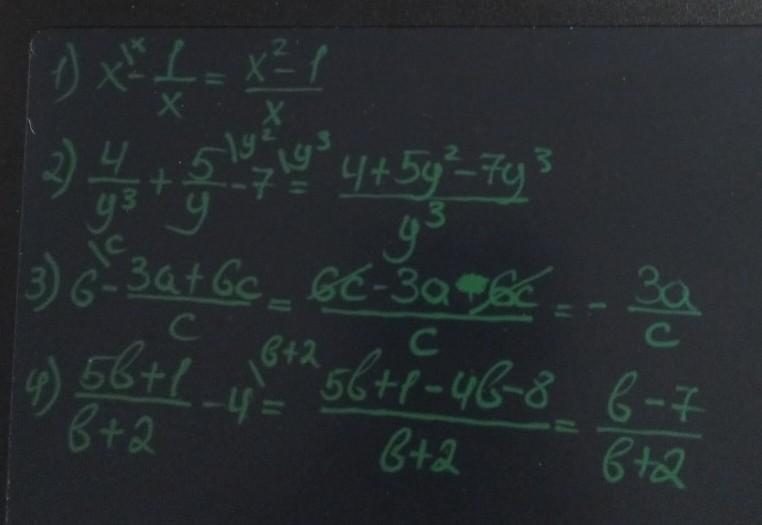 1) x\ˣ - 1/x = (x² - 1)/x
2) 4/y³ + 5/y\y² - 7\y³ = (4 + 5y² - 7y³)/y³
3) 6\c - (3a + 6c)/c = (6c - 3a - 6c)/c = - 3a/c
4) (5b + 1)/(b + 2) - 4\b+2 = (5b + 1 - 4b - 8)/(b + 2) = (b - 7)/(b + 2)